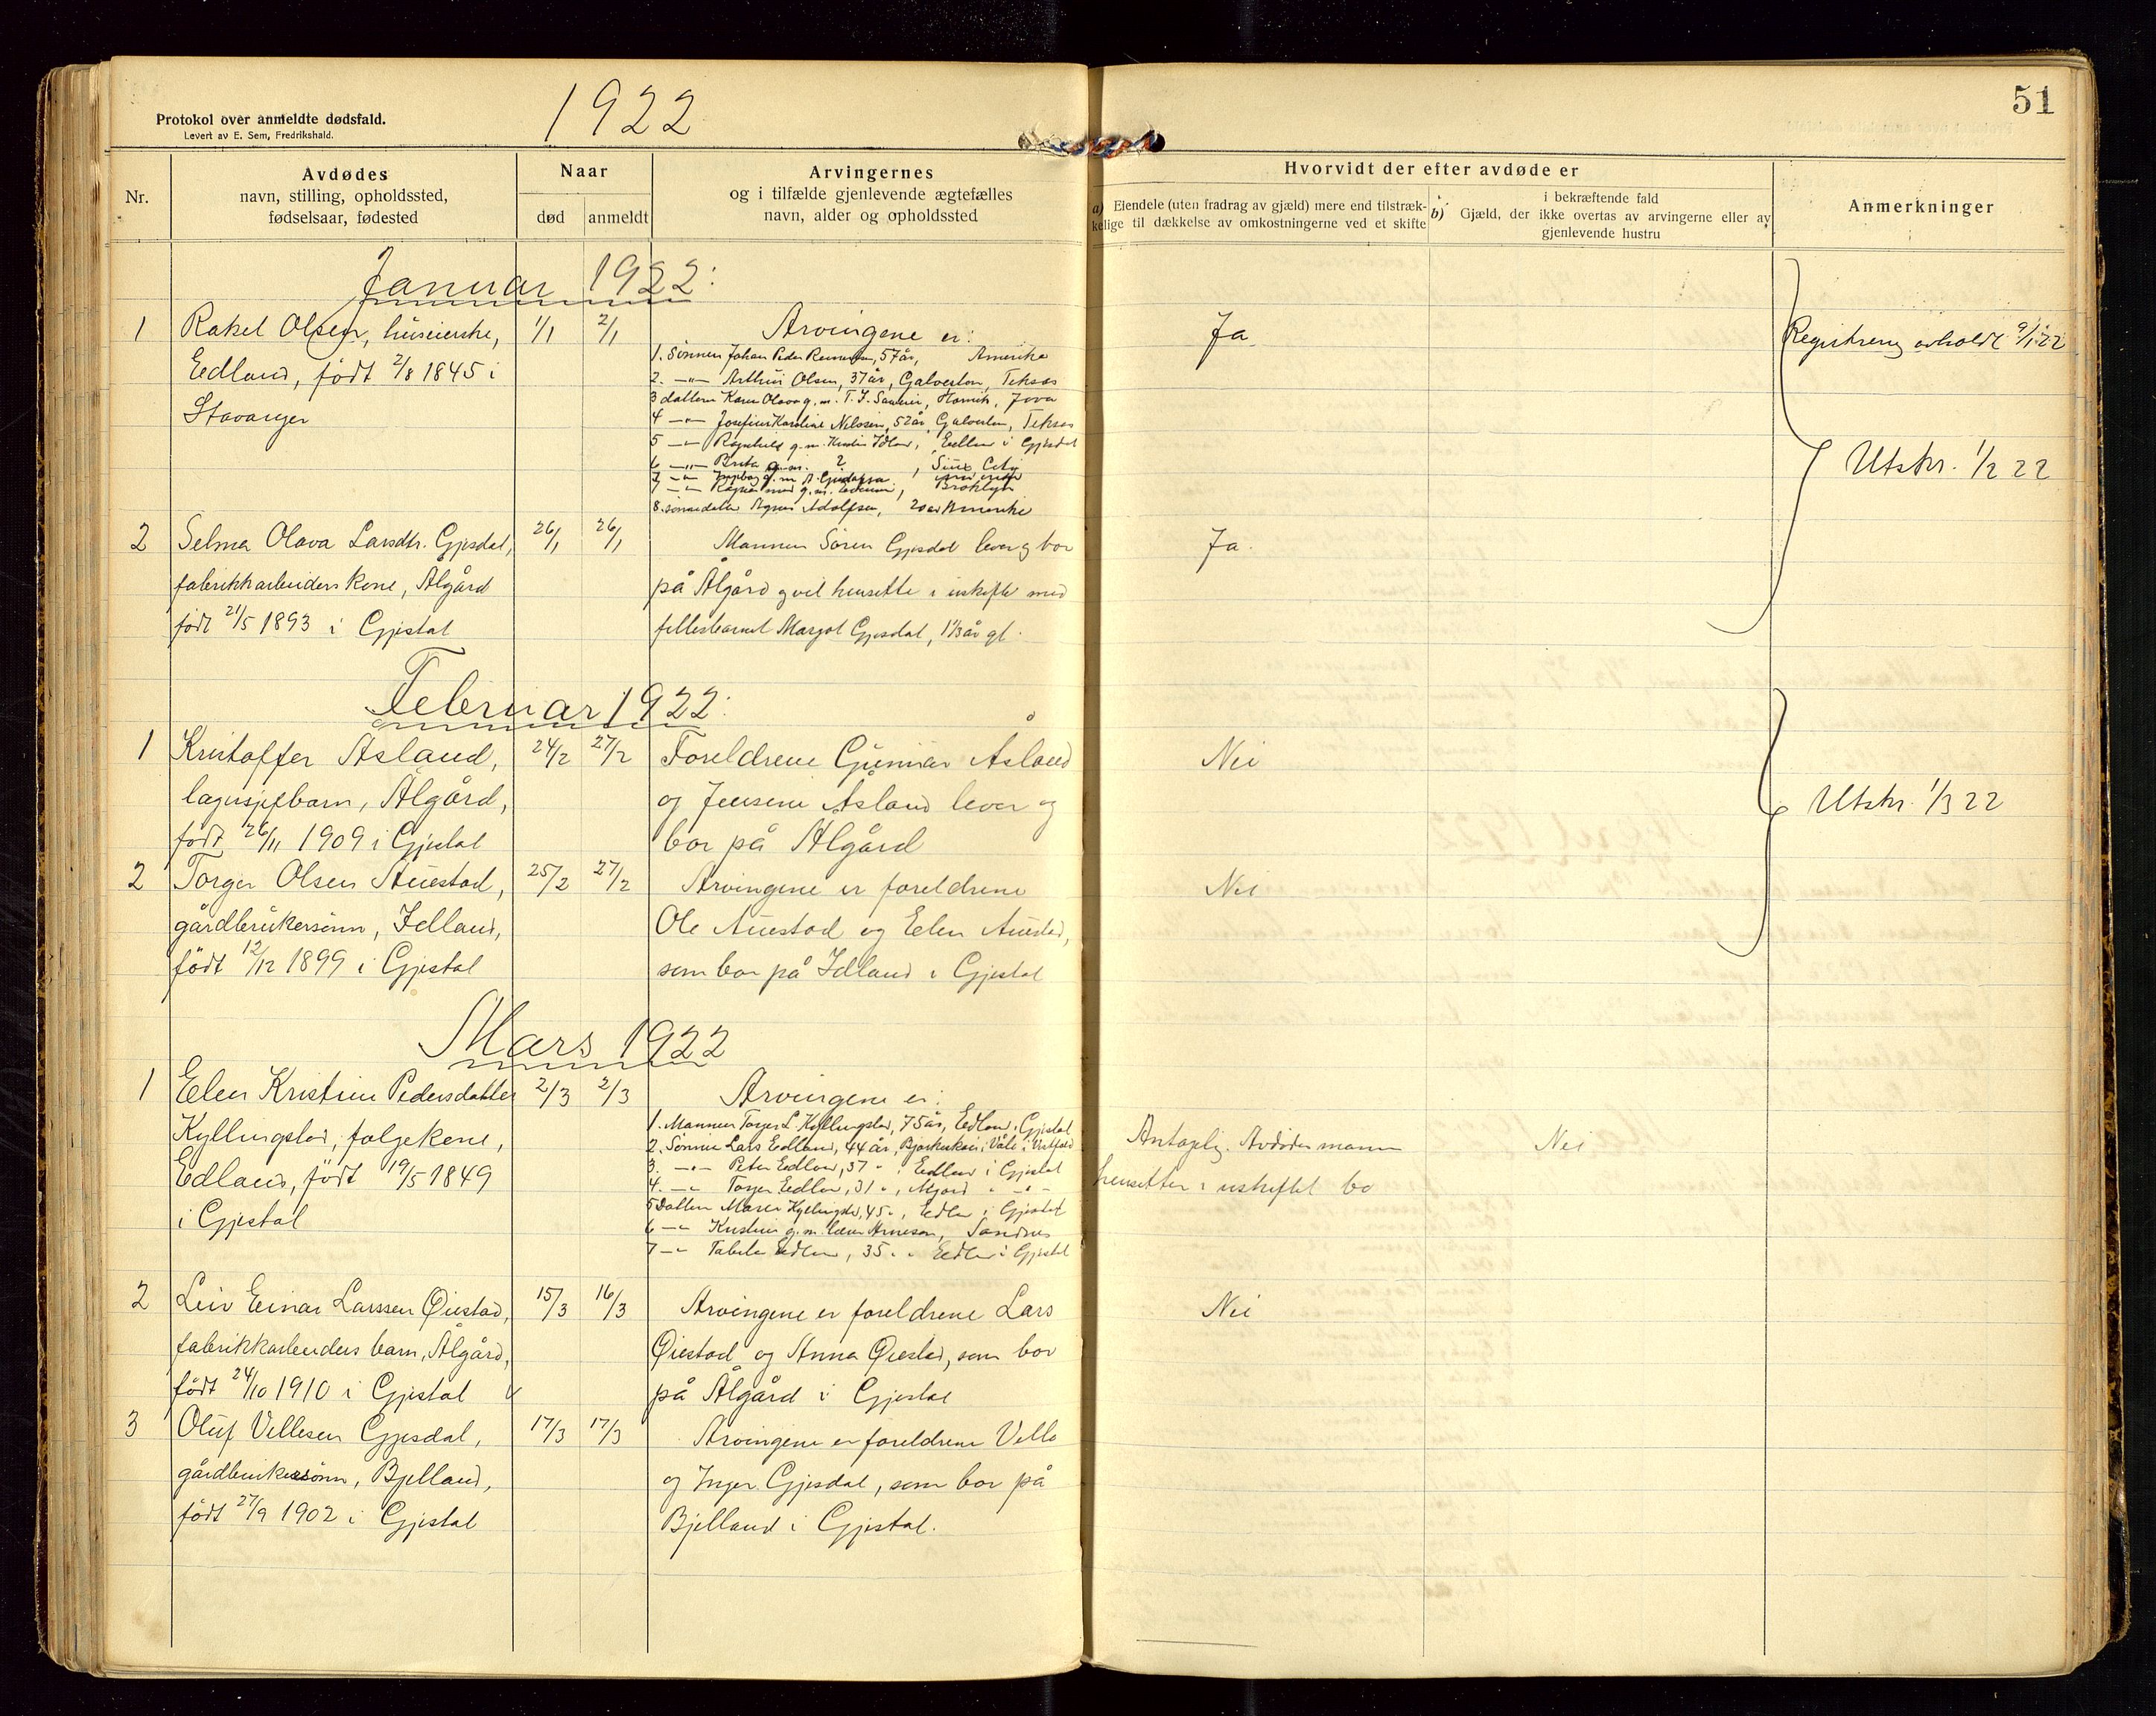 Protokol over anmeldte dødsfald.
Levert av E. Sem, Fredrikshald.
1922
51
Nr.
Avdødes
navn, stilling, opholdssted,
fødselsaar, fødested
Naar
død
anmeldt
Arvingernes
og i tilfælde gjenlevende ægtefælles
navn, alder og opholdssted
Hvorvidt der efter avdøde er
a) Eiendele (uten fradrag av gjæld) mere end tilstræk-
kelige til dækkelse av omkostningerne ved et skifte
b) i bekræftende fald
Gjæld, der ikke overtas av arvingerne eller av
gjenlevende hustru
Anmerkninger
Januar 1922:
1 Rakel Olsen, húseierske, 1/1 2/1
Edland, født 2/8 1845 i
Stavanger
Arvingene er:
1. Sønnen Johan Peder 57 år, Amerika
2. -"- Arthur Olsen, 37 år, Galveston, Teksas
3 datteren Karen Olava g. m. T. J.
4 -"- Josefine Karoline Nilssen, 52 år, Galveston, Teksas
5 -"- Ragnhild g. m. Edland i Gjestal
6 -"- Berta g. m. ?, Siux City
7 -"- g. m. Broklyn
8. sønnedatter Agnes Adolfsen, 20 år Amerika
Ja
Registrering avholdt 9/1 22
Utskr. 1/2 22
2 Selma Olava Larsdtr. Gjesdal, 26/1 26/1
fabrikkarbeiders kone, Ålgård
født 21/5 1893 i Gjestal
Mannen Sören Gjesdal lever og bor
på Ålgård og vil hensitte i uskifte med
fellesbarnet Margot Gjesdal, 1 1/3 år gl.
Ja.
Februar 1922:
1 Kristoffer Åsland, 24/2 27/2
lagersjefbarn, Ålgård,
født 26/11 1909 i Gjestal
Foreldrene Gunnar Åsland
og Jensine Åsland lever og
bor på Ålgård
Nei
Utskr. 1/3 22
2 Torger Olsen Auestad, 25/2 27/2
gårdbrukersönn, Idland,
født 12/12 1899 i Gjestal
Arvingene er foreldrene
Ole Auestad og Elen Auestad,
som bor på Idland i Gjestal
Nei
Mars 1922
1 Elen Kristine Pedersdatter 2/3 2/3
Kyllingstad, folgekone,
Edland, født 19/5 1849
i Gjestal
Arvingene er:
1. Mannen Torger L. Kyllingstad, 75 år, Edland i Gjestal
2. Sønnen Lars Edland, 44 år, i Våle i Vestfold
3. -"- Peter Edland, 37 " , Edland i Gjestal
4. -"- Torger Edland, 31 " , " - " -
5 Datter Kyllingstad, 45 " , Edland i Gjestal
6 -"- Kristine g. m. Sandnes
7 -"- Tabita Edland, 35 " " Edland i Gjestal
Antagelig. Avdødes mann
hensitter i uskiftet bo
Nei
2 Leiv Einar Larssen Øiestad, 15/3 16/3
fabrikkarbeiders barn, Ålgård,
født 24/10 1910 i Gjestal
Arvingene er foreldrene Lars
Øiestad og Anna Øiestad, som bor
på Ålgård i Gjestal
Nei
3 Oluf Vellesen Gjesdal, 17/3 17/3
gårdbrukersönn, Bjelland,
født 27/9 1902 i Gjestal
Arvingene er foreldrene Velle
og Inger Gjesdal, som bor på
Bjelland i Gjestal.